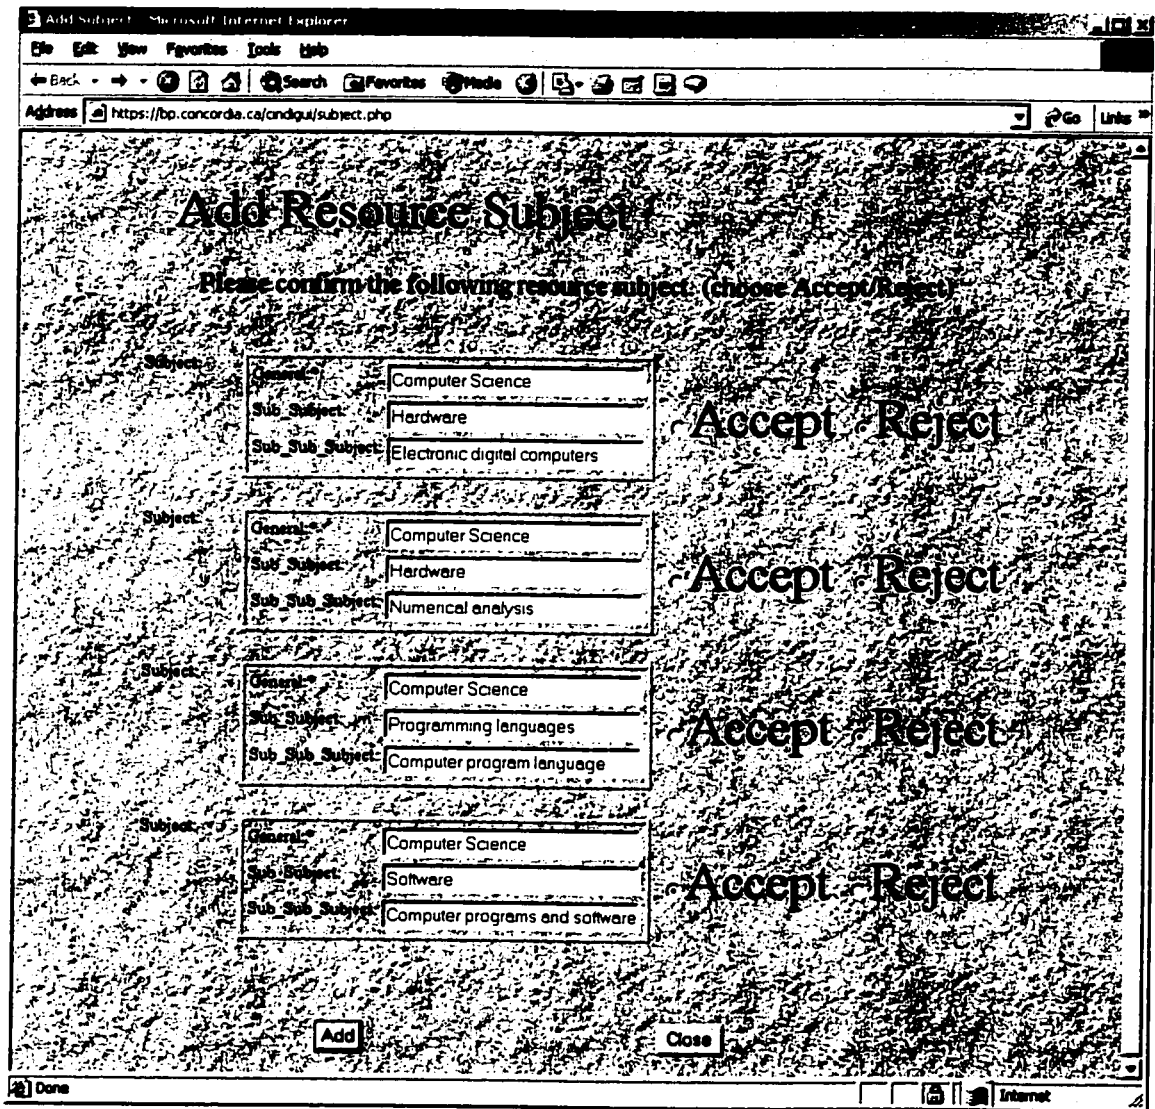 Add Subject - Microsoft Internet Explorer
File Edit View Favorites Tools Help
Back Search Favorites Media
Address https://bp.concordia.ca/cindigui/subject.php Go Links »
Add Resource Subject
Please confirm the following resource subject. (choose Accept/Reject)
Subject: General:* Computer Science
Sub_Subject: Hardware Accept Reject
Sub_Sub_Subject: Electronic digital computers
Subject: General:* Computer Science
Sub_Subject: Hardware Accept Reject
Sub_Sub_Subject: Numerical analysis
Subject: General:* Computer Science
Sub_Subject: Programming languages Accept Reject
Sub_Sub_Subject: Computer program language
Subject: General:* Computer Science
Sub_Subject: Software Accept Reject
Sub_Sub_Subject: Computer programs and software
Add Close
Done Internet